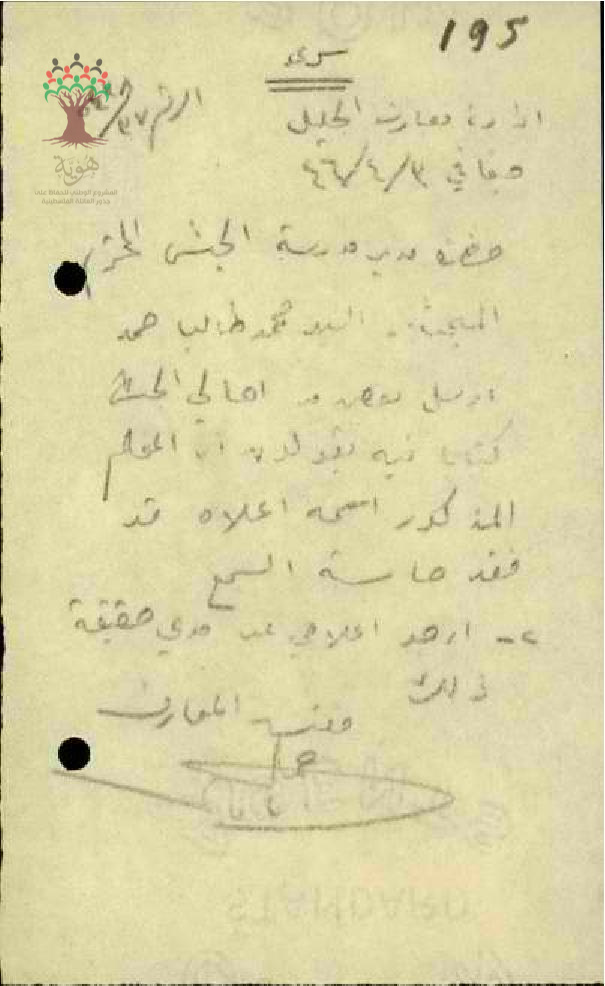 195
سري
الرقم ٣٧/
ادارة معارف الجليل
صفد في ٤٦/٤/٣
هُوِيَّة
المشروع الوطني للحفاظ على
جذور العائلة الفلسطينية
حضرة مدير مدرسة الجش المحترم
السيد محمد طالب حمد
ارسل بعض من اهالي الجش
كتابا فيه يقولون ان المعلم
المذكور اسمه اعلاه قد
فقد حاسة السمع
٢- ارجو اعلامي عن مدى حقيقة
ذلك
مفتش المعارف
STANDARD